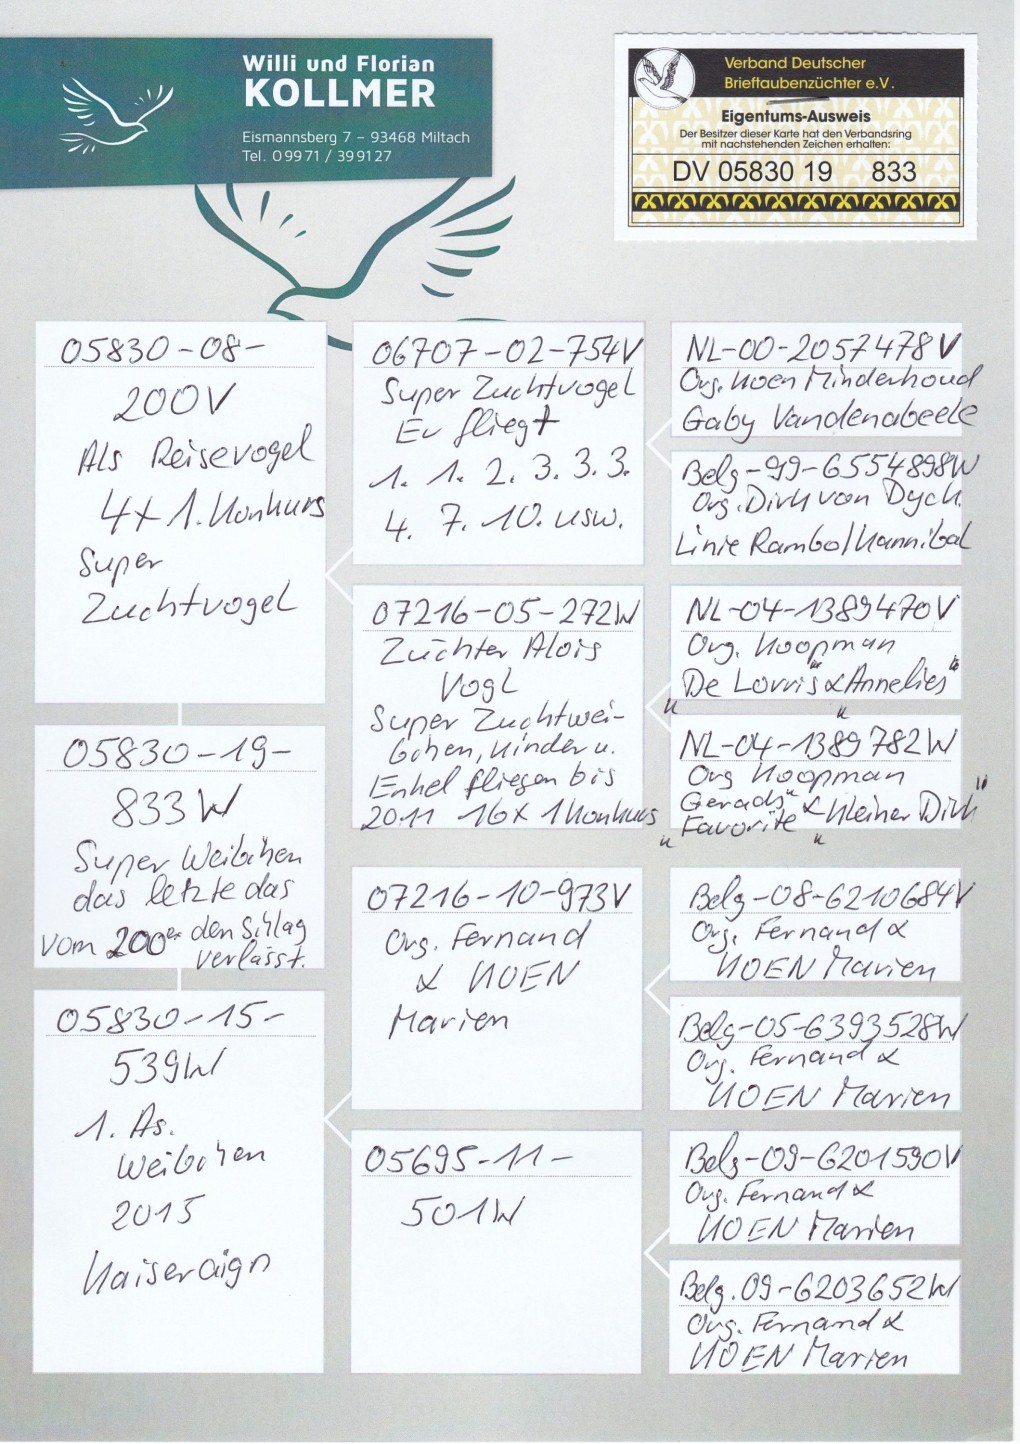 Willi und Florian
KOLLMER
Eismannsberg 7 – 93468 Miltach
Tel. 0 99 71 / 39 91 27
Verband Deutscher
Brieftaubenzüchter e.V.
Eigentums-Ausweis
Der Besitzer dieser Karte hat den Verbandsring
mit nachstehenden Zeichen erhalten:
DV 05830 19 833
05830-08-
200V
Als Reisevogel
4x 1. Konkurs
Super
Zuchtvogel
05830-19-
833W
Super Weibchen
das letzte das
vom 200er den Schlag
verlässt.
05830-15-
539W
1. As.
Weibchen
2015
Kaiseraign
06707-02-754V
Super Zuchtvogel
Er fliegt
1. 1. 2. 3. 3. 3.
4. 7. 10. usw.
07216-05-272W
Züchter Alois
Vogl
Super Zuchtwei-
bchen, Kinder u.
Enkel fliegen bis
2011 16x 1 Konkurs
07216-10-973V
Org. Fernand
& KOEN
Marien
05695-11-
501W
NL-00-2057478V
Org. Koen Minderhoud
Gaby Vandenabeele
Belg-99-6554898W
Org. Dirk van Dyck.
Linie Rambo/Kannibal
NL-04-1389470V
Org. Koopman
"De Lorris" & "Annelies"
NL-04-1389782W
Org Koopman
Gerads
"Favorite" & "Kleiner Dirk"
Belg-08-6210684V
Org. Fernand &
KOEN Marien
Belg-05-6393528W
Org. Fernand &
KOEN Marien
Belg-09-6201590V
Org. Fernand &
KOEN Marien
Belg. 09-6203652W
Org. Fernand &
KOEN Marien